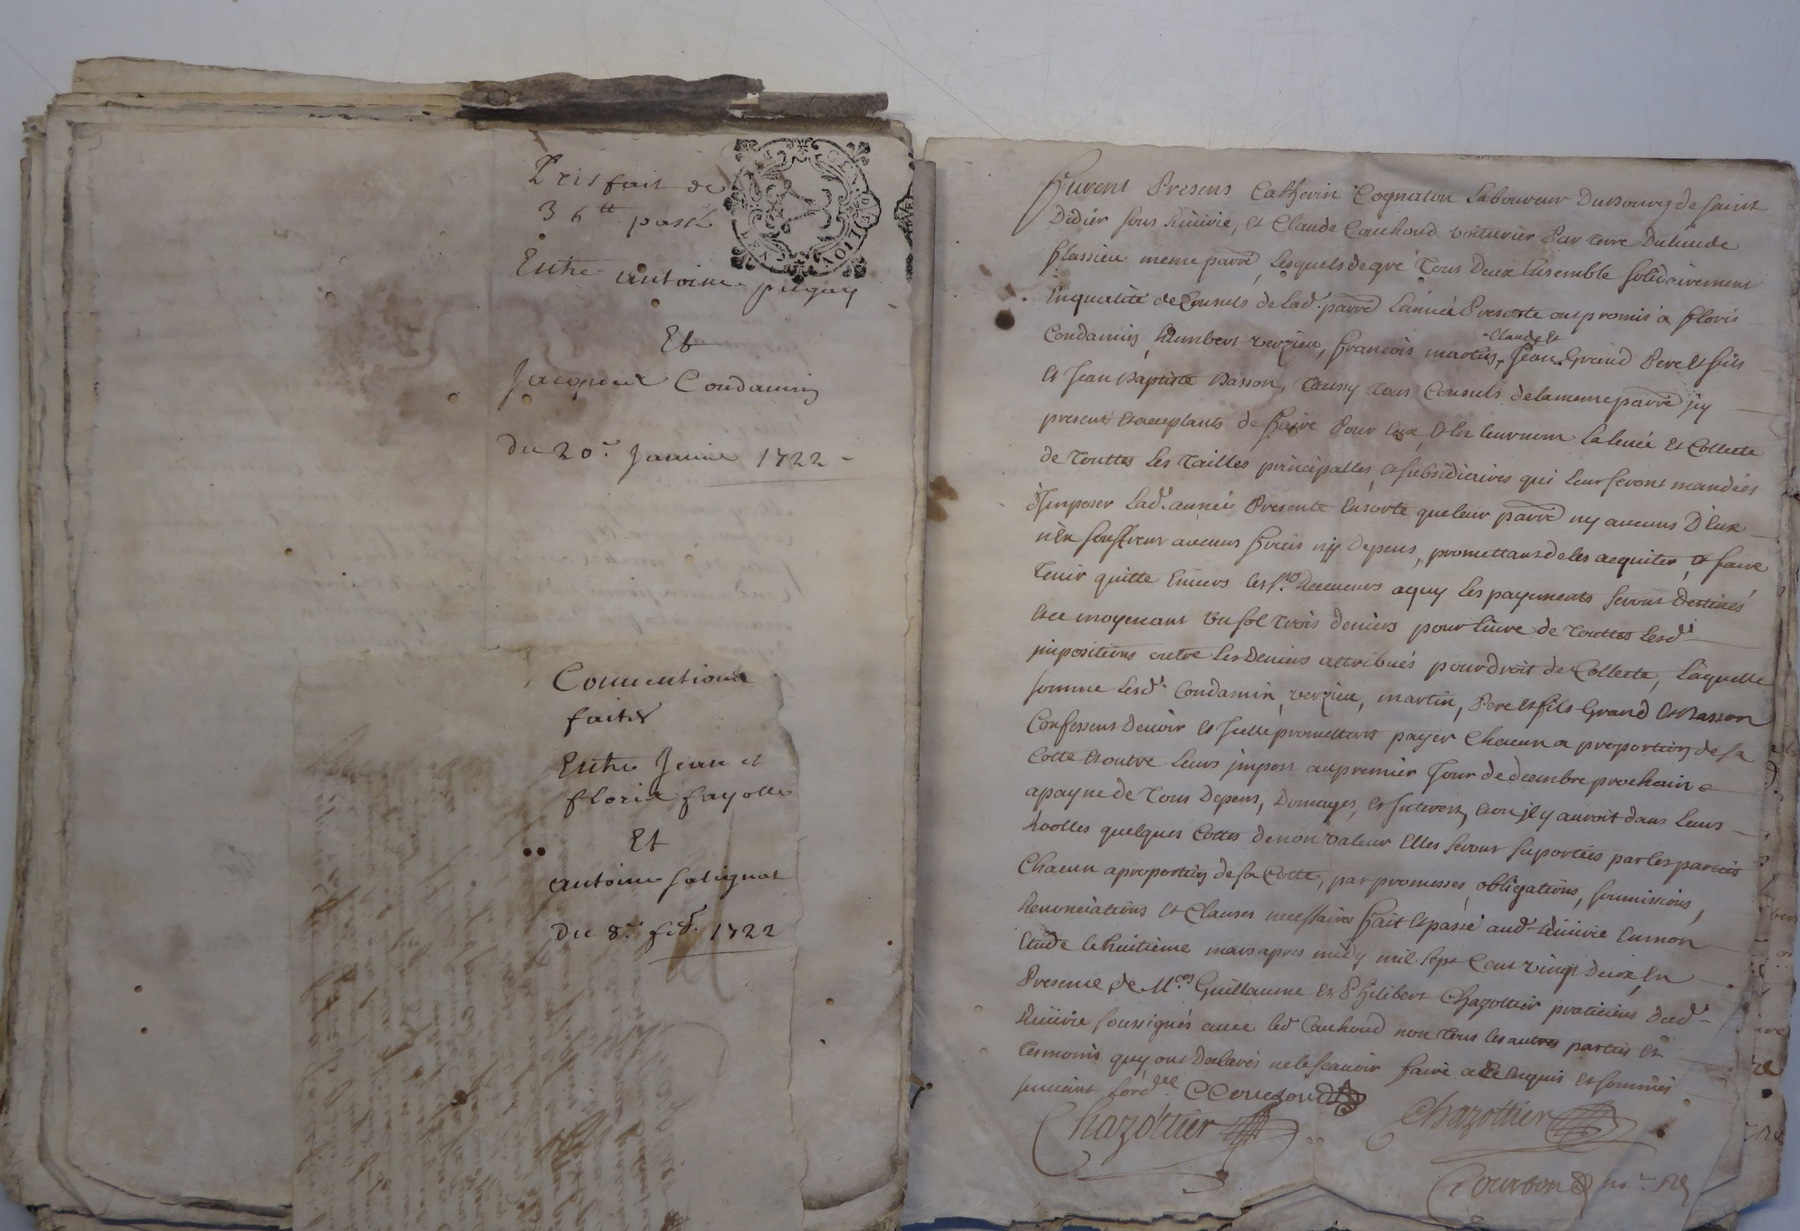 Prisfait de
36 tt passé
Entre antoine pugay
Et
Jacques Condamin
du 20e Janvier 1722
Conventions
faites
Entre Jean et
floris fayolle
Et
antoine salignat
du 8e feb. 1722
furent Presens Catherin Cognaton Laboureur Dubourg de saint
Didier sous Riuirie, et Claude Cauhoud voiturier Par terre Du
flassieu meme parre, Lesquels de gre Tous Deux Ensemble solidairement
Enqualité de Consuls de Lad. parre Lannée Presente ont promis a floris
Condamin, humbert verzieu, francois martin, Claude et Jean Grand Pere et fils
et Jean Baptiste Basson, aussy tous Consuls delamemeparre jcy
presents et acceptants de faire Pour Eux et En leurnom La leuée Et Collecte
de Touttes Les Tailles principalles, et subsidiaires qui Leur seront mandées
d'Imposer Lad. année Presente Ensorte queleur parre ny aucuns D'Eux
n'En souffrent aucuns fraix ny depens, promettans de les acquiter et faire
Tenir quitte Enuers les srs Receueurs aquy Les payements seront Destinés
et ce moyenant un sol trois deniers pour Liure de Touttes Lesd.
jmpositions outre Les Deniers attribués pour droit de Collecte, Laquelle
somme Lesd. Condamin, verzieu, martin, Pere et fils Grand et Basson
Confessent deuoir Et promettent payer Chacun a proportion de sa
Cotte Et outre Leurs jmpost au premier Jour de decembre prochain
apayne de Tous Depens, Domages, et Interests, Et ou jl y auroit dans Leurs
Roolles quelques Cottes de non valeur Elles seront suportées par les parties
Chacun a proportion de sa Cotte, par promesses, obligations, soumissions,
Renonciations Et Clauses necessaires fait Et passé aud. Riuirie Enmon
Etude le huitieme mars apres midy mil sept Cent vingt deux, En
Presence de Mres Guillaume Et Philibert Chazottier praticiens dud.
Riuirie soussignés auec led Cauhoud non tous les autres parties Et
tesmoins quy ont declarés ne le scauoir faire a Ce Enquis Et sommés
suiuant lord.
Chazottier
Chazottier
Tourton